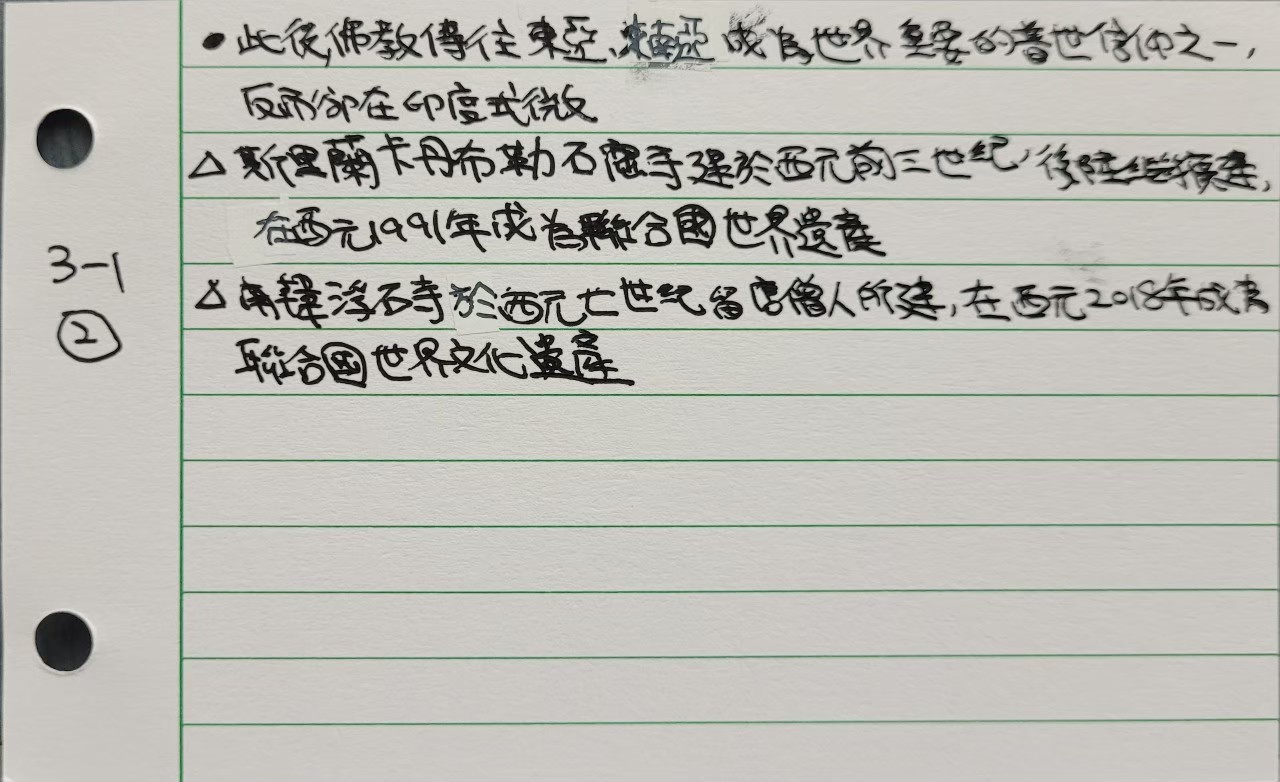 • 此後,佛教傳往東亞、東南亞成為世界重要的普世信仰之一,
反而卻在印度式微
△ 斯里蘭卡丹布勒石窟寺建於西元前三世紀,後陸續擴建,
在西元1991年成為聯合國世界遺產
3-1
②
△ 南韓浮石寺於西元七世紀留唐僧人所建,在西元2018年成為
聯合國世界文化遺產